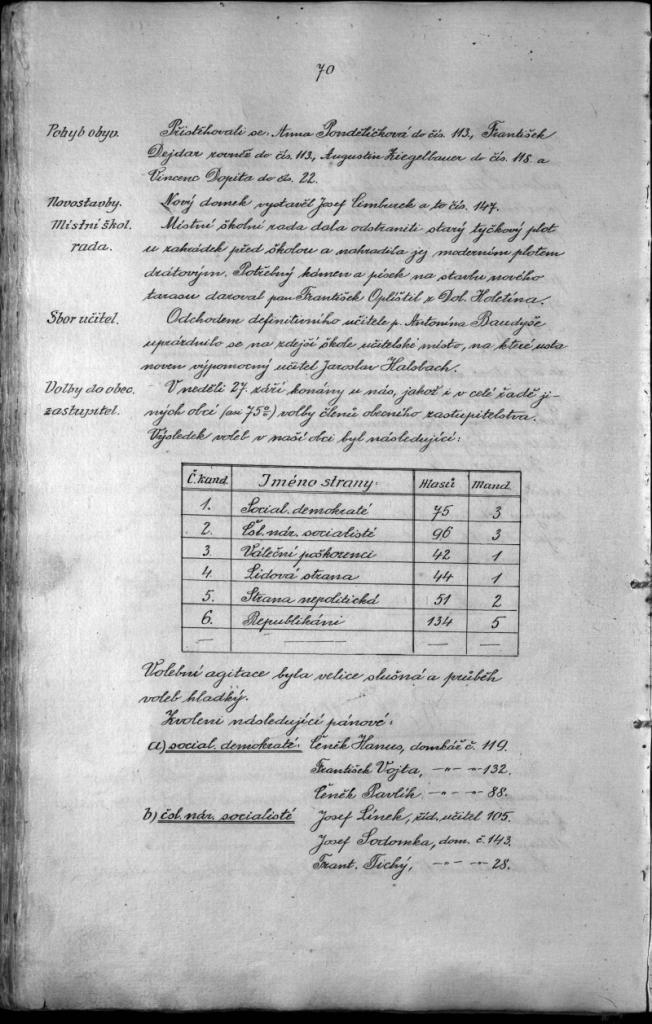 70
Pohyb obyv. Přistěhovali se: Anna Pondělíčková do čís. 113, František
Dejdar rovněž do čís. 113, Augustin Ziegelbauer do čís. 118 a
Vincenc Dopita do čís. 22.
Novostavby. Nový domek vystavěl Josef Cimburek a to čís. 147.
Místní škol. Místní školní rada dala odstraniti starý tyčkový plot
rada. u zahrádek před školou a nahradila jej moderním plotem
drátovým. Potřebný kámen a písek na stavbu nového
tarasu daroval pan František Oplištil z Dol. Holetína.
Sbor učitel. Odchodem definitivního učitele p. Antonína Baudyše
uprázdnilo se na zdejší škole učitelské místo, na které usta
noven výpomocný učitel Jaroslav Halsbach.
Volby do obec. V neděli 27. září konány u nás, jakož i v celé řadě ji-
zastupitel. ných obcí (asi 75%) volby členů obecního zastupitelstva.
Výsledek voleb v naší obci byl následující:
Č. kand. Jméno strany: Hlasů Mand.
1. Social. demokraté 75 3
2. Čsl. nár. socialisté 96 3
3. Váleční poškozenci 42 1
4. Lidová strana 44 1
5. Strana nepolitická 51 2
6. Republikáni 134 5
— — — —
Volební agitace byla velice slušná a průběh
voleb hladký.
Zvoleni následující pánové:
a) social. demokraté: Čeněk Hanus, domkář č. 119.
František Vojta, —"— —"— 132.
Čeněk Pavlík —"— —"— 88.
b) čsl. nár. socialisté Josef Línek, říd. učitel 105.
Josef Sodomka, dom. č. 143.
Frant. Tichý, —"— —"— 28.